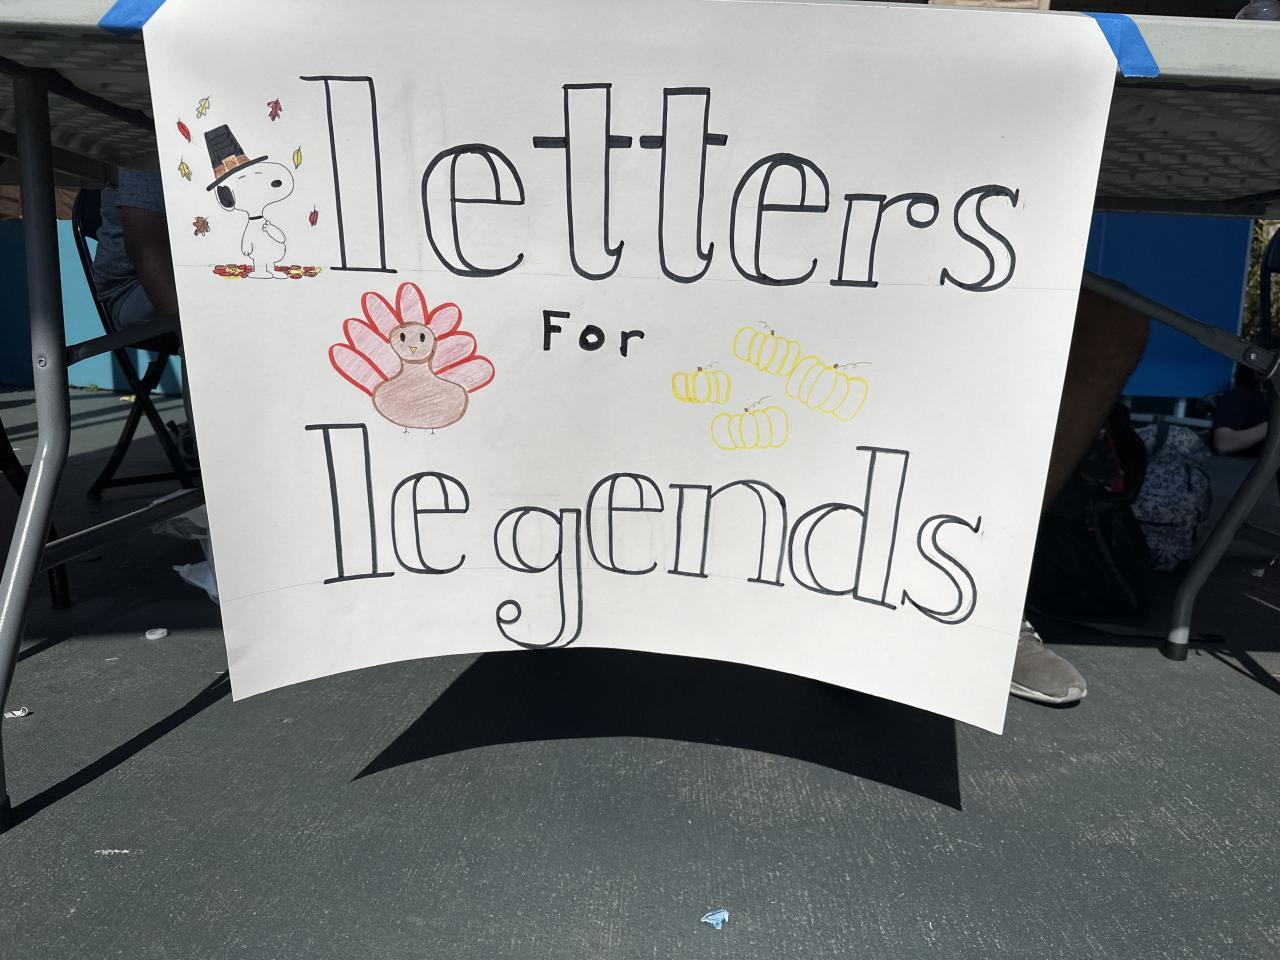 letters
For
legends